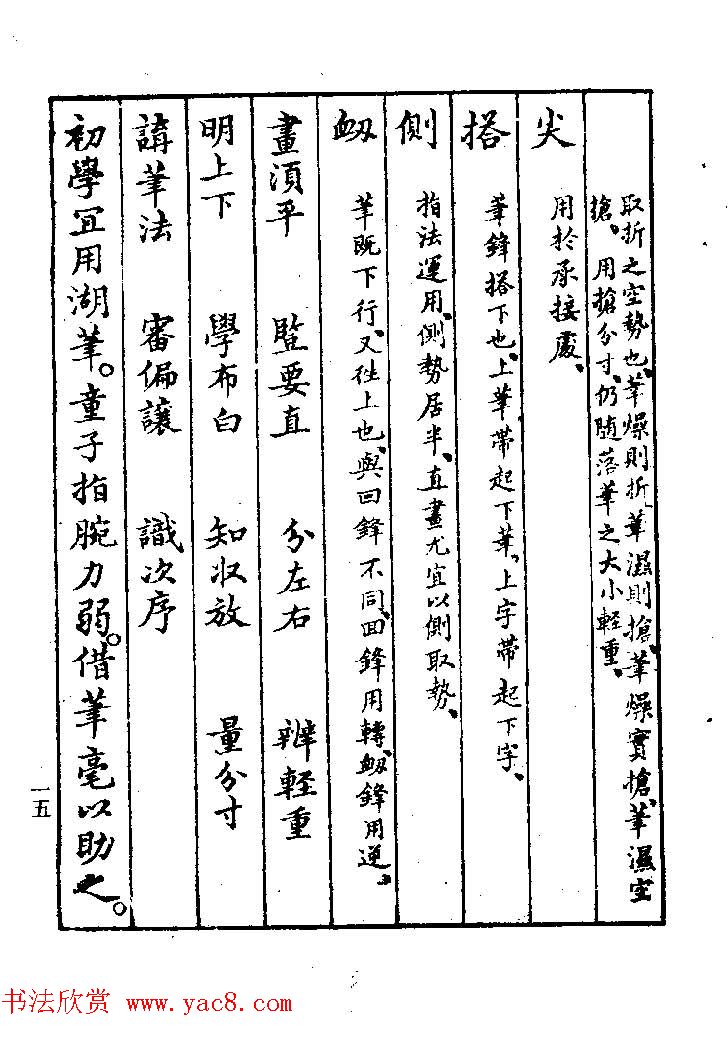 取折之空勢也、筆燥則折、筆濕則搶、筆燥實搶、筆濕空
搶、用搶分寸、仍随落筆之大小輕重、
尖 用於承接處、
搭 筆鋒搭下也、上筆帶起下筆、上字帶起下字、
側 指法運用、側勢居半、直畫尤宜以側取勢、
衂 筆既下行、又往上也、與回鋒不同、回鋒用轉、衂鋒用逆、
畫須平 豎要直 分左右 辨輕重
明上下 學布白 知收放 量分寸
講筆法 審偏讓 識次序
初學宜用湖筆。童子指腕力弱。借筆毫以助之。
一五
书法欣赏 www.yac8.com